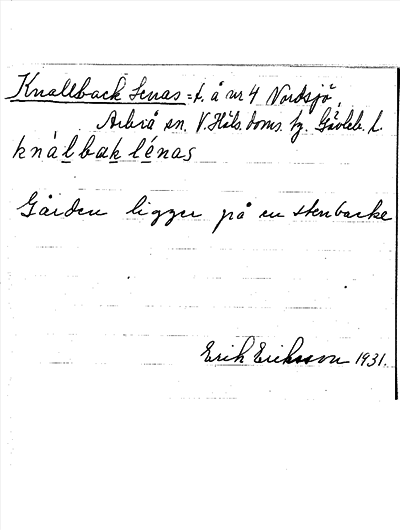 Knallback Lenas = t. å nr 4 Nordsjö,
Arbrå sn. V. Häls. doms. hg. Gävleb. l.
knàlbak lénas
Gården ligger på en stenbacke
Erik Eriksson 1931.